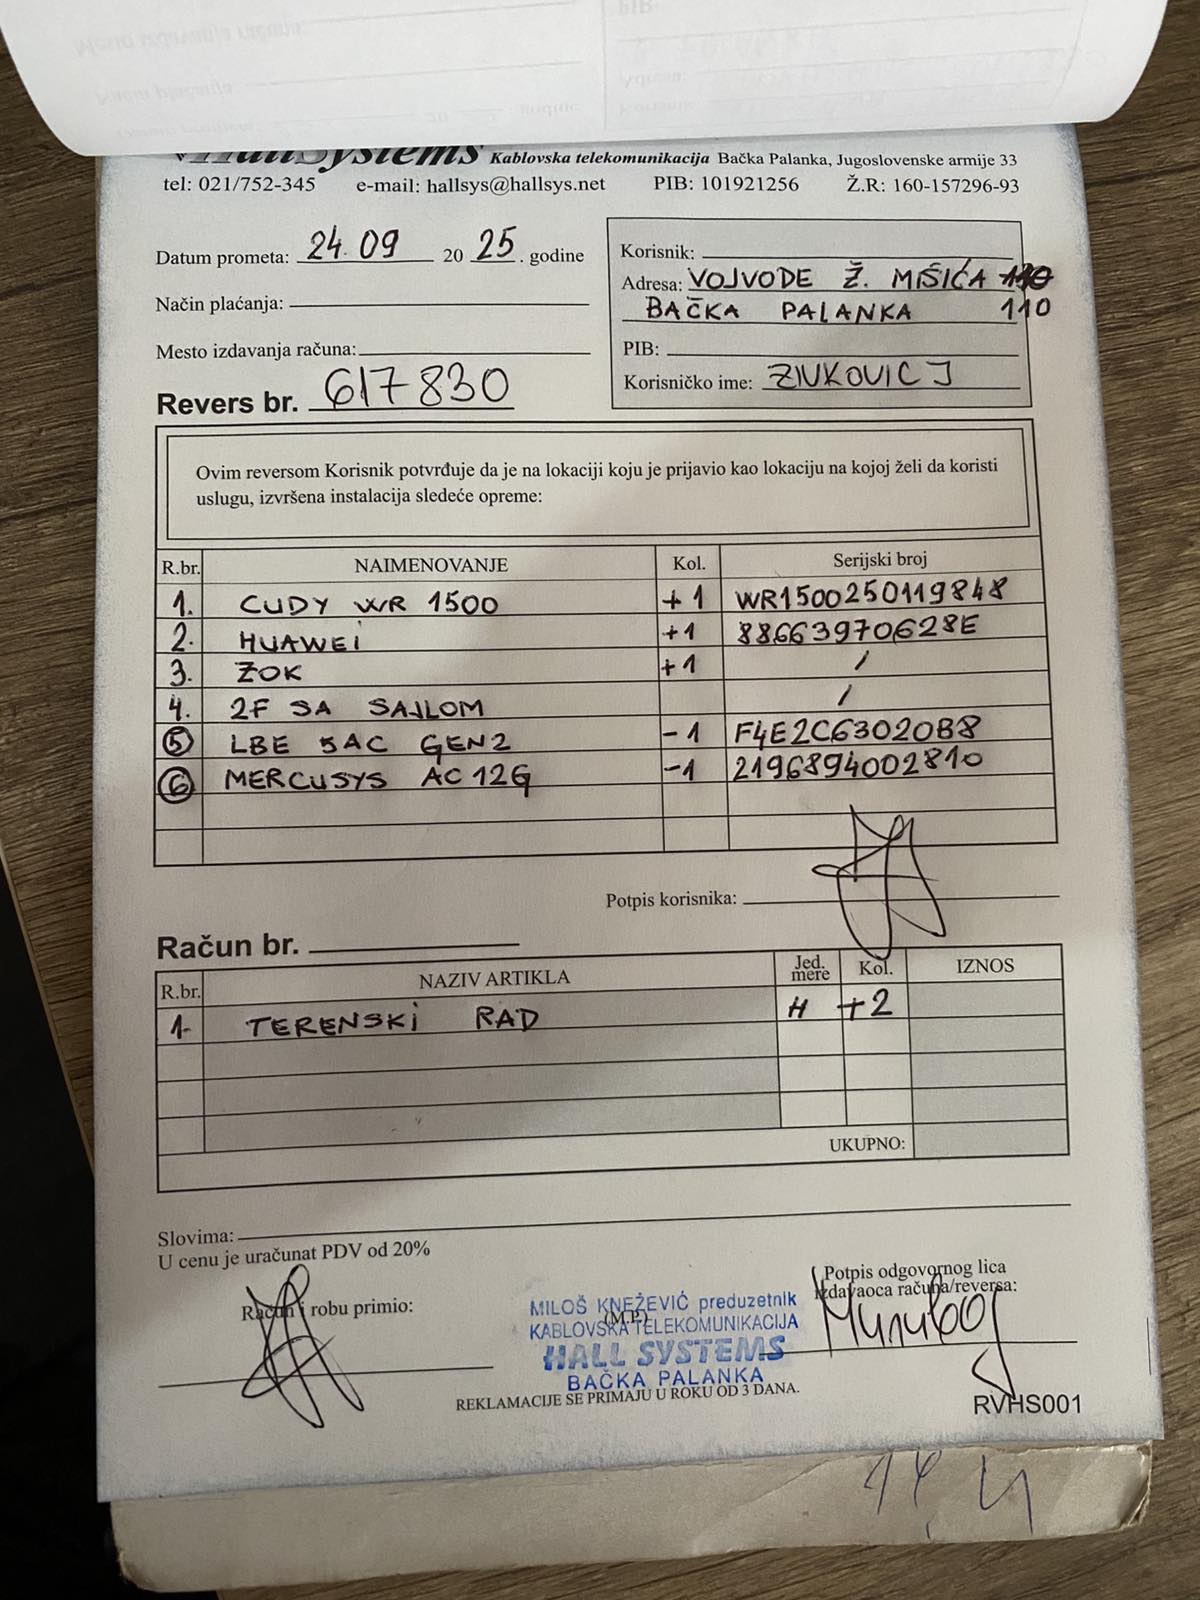 HallSystems Kablovska telekomunikacija Bačka Palanka, Jugoslovenske armije 33
tel: 021/752-345 e-mail: hallsys@hallsys.net PIB: 101921256 Ž.R: 160-157296-93
Datum prometa: 24.09 20 25. godine
Način plaćanja:
Mesto izdavanja računa:
Revers br. 617830
Korisnik:
Adresa: VOJVODE Ž. MIŠIĆA
BAČKA PALANKA 110
PIB:
Korisničko ime: ZIVKOVIC J
Ovim reversom Korisnik potvrđuje da je na lokaciji koju je prijavio kao lokaciju na kojoj želi da koristi
uslugu, izvršena instalacija sledeće opreme:
R.br. NAIMENOVANJE Kol. Serijski broj
1. CUDY WR 1500 +1 WR1500250119848
2. HUAWEI +1 88663970628E
3. ZOK +1 /
4. 2F SA SAJLOM /
5 LBE 5AC GEN2 -1 F4E2C63020B8
6 MERCUSYS AC12G -1 2196894002810
Potpis korisnika:
Račun br.
R.br. NAZIV ARTIKLA Jed. mere Kol. IZNOS
1- TERENSKI RAD H +2
UKUPNO:
Slovima:
U cenu je uračunat PDV od 20%
Račun i robu primio:
MILOŠ KNEŽEVIĆ preduzetnik
(M.P.)
KABLOVSKA TELEKOMUNIKACIJA
HALL SYSTEMS
BAČKA PALANKA
Potpis odgovornog lica
izdavaoca računa/reversa:
REKLAMACIJE SE PRIMAJU U ROKU OD 3 DANA.
RVHS001